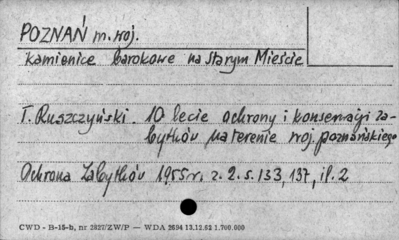 POZNAŃ m. woj.
kamienice barokowe na Starym Mieście
T. Ruszczyński. 10 lecie ochrony i konserwacji za-
bytków na terenie woj. poznańskiego
Ochrona Zabytków 1955 r. z. 2. s. 133, 137, il. 2
CWD - B-15-b, nr 2827/ZW/P — WDA 2694 13.12.52 1.700.000